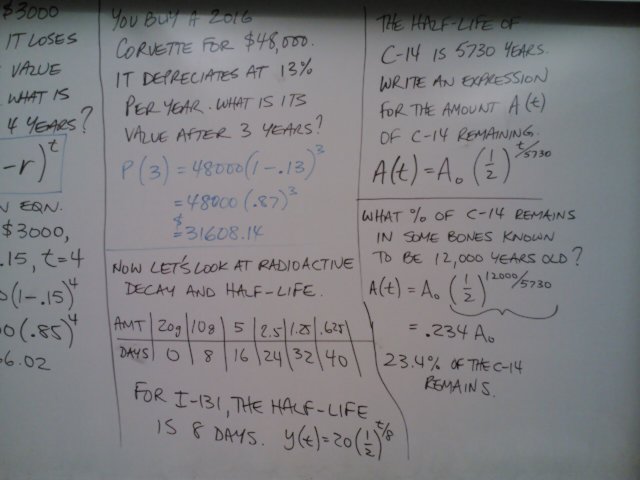 $3000
IT LOSES
VALUE
WHAT IS
4 YEARS?
-r)^t
EQN.
$3000,
.15, t=4
(1-.15)^4
0(.85)^4
6.02
YOU BUY A 2016
CORVETTE FOR $48,000.
IT DEPRECIATES AT 13%
PER YEAR. WHAT IS ITS
VALUE AFTER 3 YEARS?
P(3) = 48000(1-.13)^3
= 48000(.87)^3
= $31608.14
NOW LET'S LOOK AT RADIOACTIVE
DECAY AND HALF-LIFE.
AMT | 20g | 10g | 5 | 2.5 | 1.25 | .625 |
DAYS | 0 | 8 | 16 | 24 | 32 | 40
FOR I-131, THE HALF-LIFE
IS 8 DAYS. y(t)=20(1/2)^t/8
THE HALF-LIFE OF
C-14 IS 5730 YEARS.
WRITE AN EXPRESSION
FOR THE AMOUNT A(t)
OF C-14 REMAINING.
A(t) = A₀ (1/2)^t/5730
WHAT % OF C-14 REMAINS
IN SOME BONES KNOWN
TO BE 12,000 YEARS OLD?
A(t) = A₀ (1/2)^12000/5730
= .234 A₀
23.4% OF THE C-14
REMAINS.